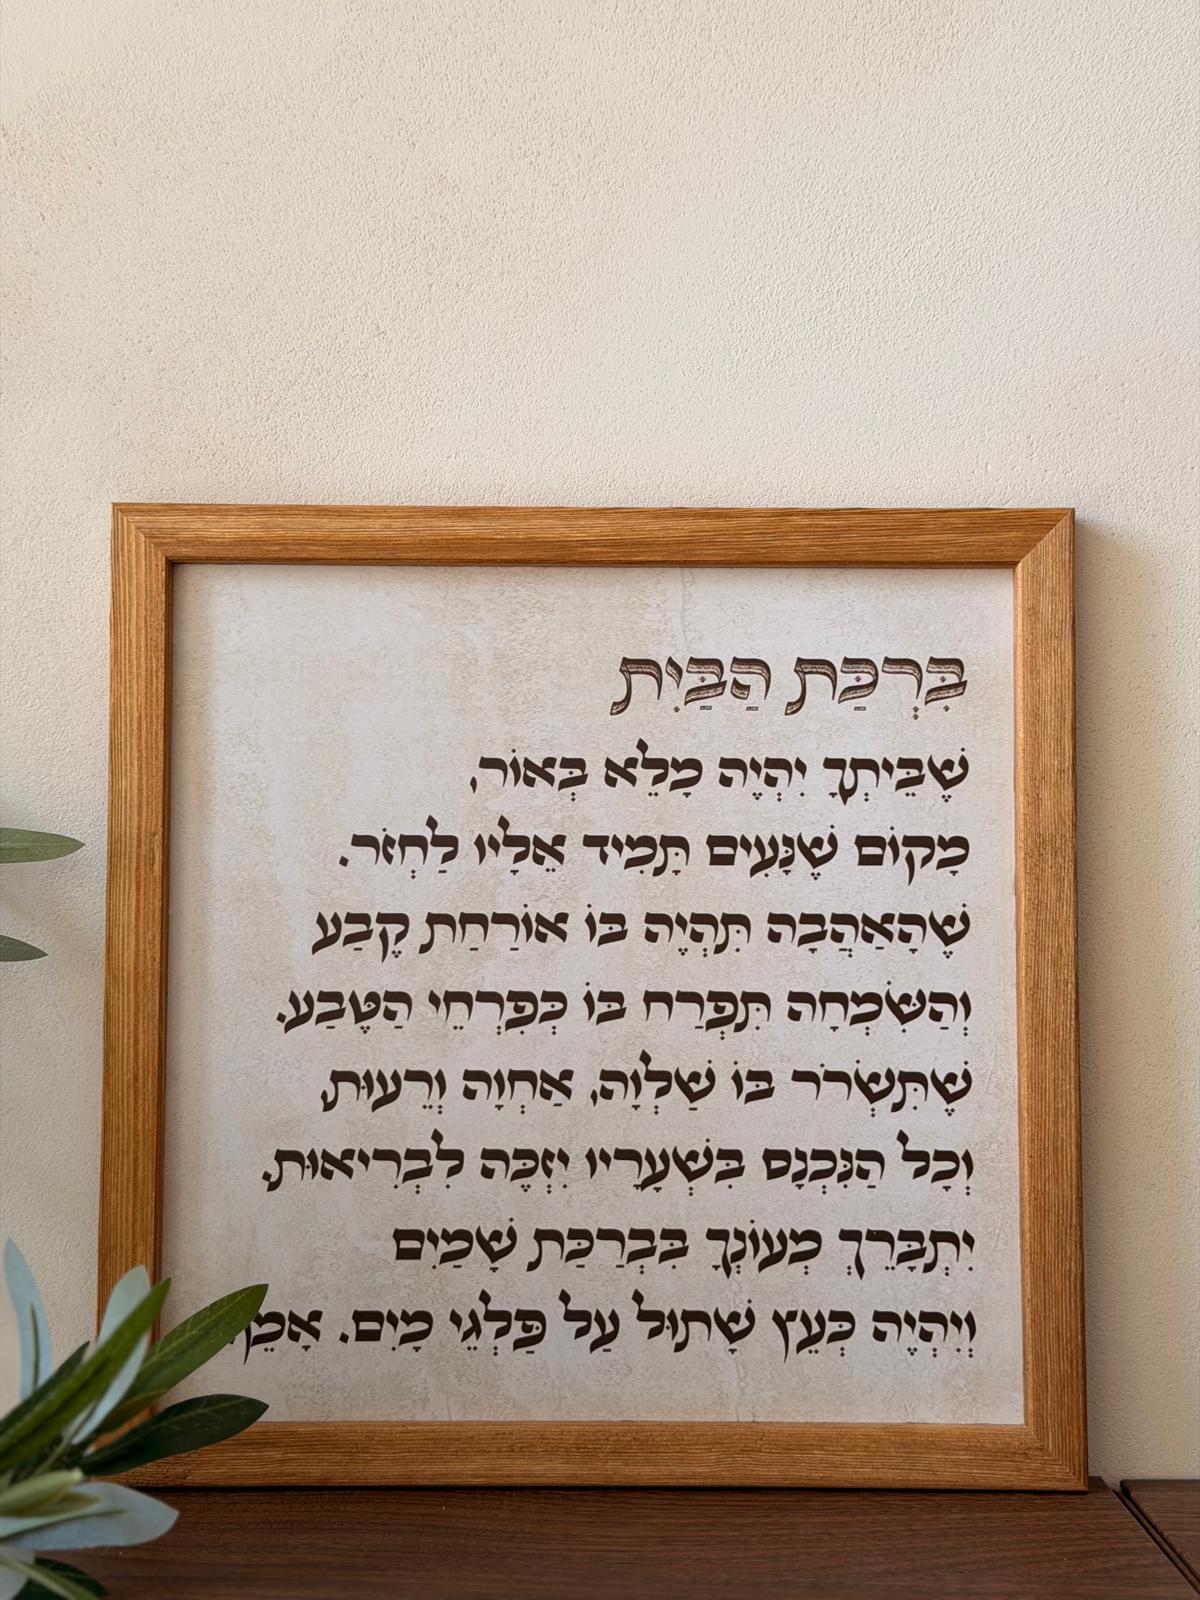 בִּרְכַּת הַבַּיִת
שֶׁבֵּיתְךָ יִהְיֶה מָלֵא בְּאוֹר,
מָקוֹם שֶׁנָּעִים תָּמִיד אֵלָיו לַחְזֹר.
שֶׁהָאַהֲבָה תִּהְיֶה בּוֹ אוֹרַחַת קֶבַע
וְהַשִּׂמְחָה תִּפְרַח בּוֹ כְּפִרְחֵי הַטֶּבַע.
שֶׁתִּשְׂרֹר בּוֹ שַׁלְוָה, אַחְוָה וְרֵעוּת,
וְכָל הַנִּכְנָס בִּשְׁעָרָיו יִזְכֶּה לִבְרִיאוּת.
יִתְבָּרֵךְ מְעוֹנְךָ בִּבְרַכַּת שָׁמַיִם
וְיִהְיֶה כְּעֵץ שָׁתוּל עַל פַּלְגֵי מָיִם. אָמֵן